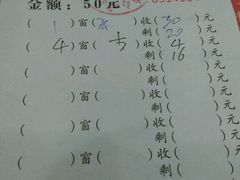 金额：50元
( 1 )窗( )收( 30 )元
剩( 20 )元
( 4 )窗( 古 )收( 4 )元
剩( 16 )元
( )窗( )收( )元
剩( )元
( )窗( )收( )元
剩( )元
( )窗( )收( )元
剩( )元
( )窗( )收( )元
剩( )元